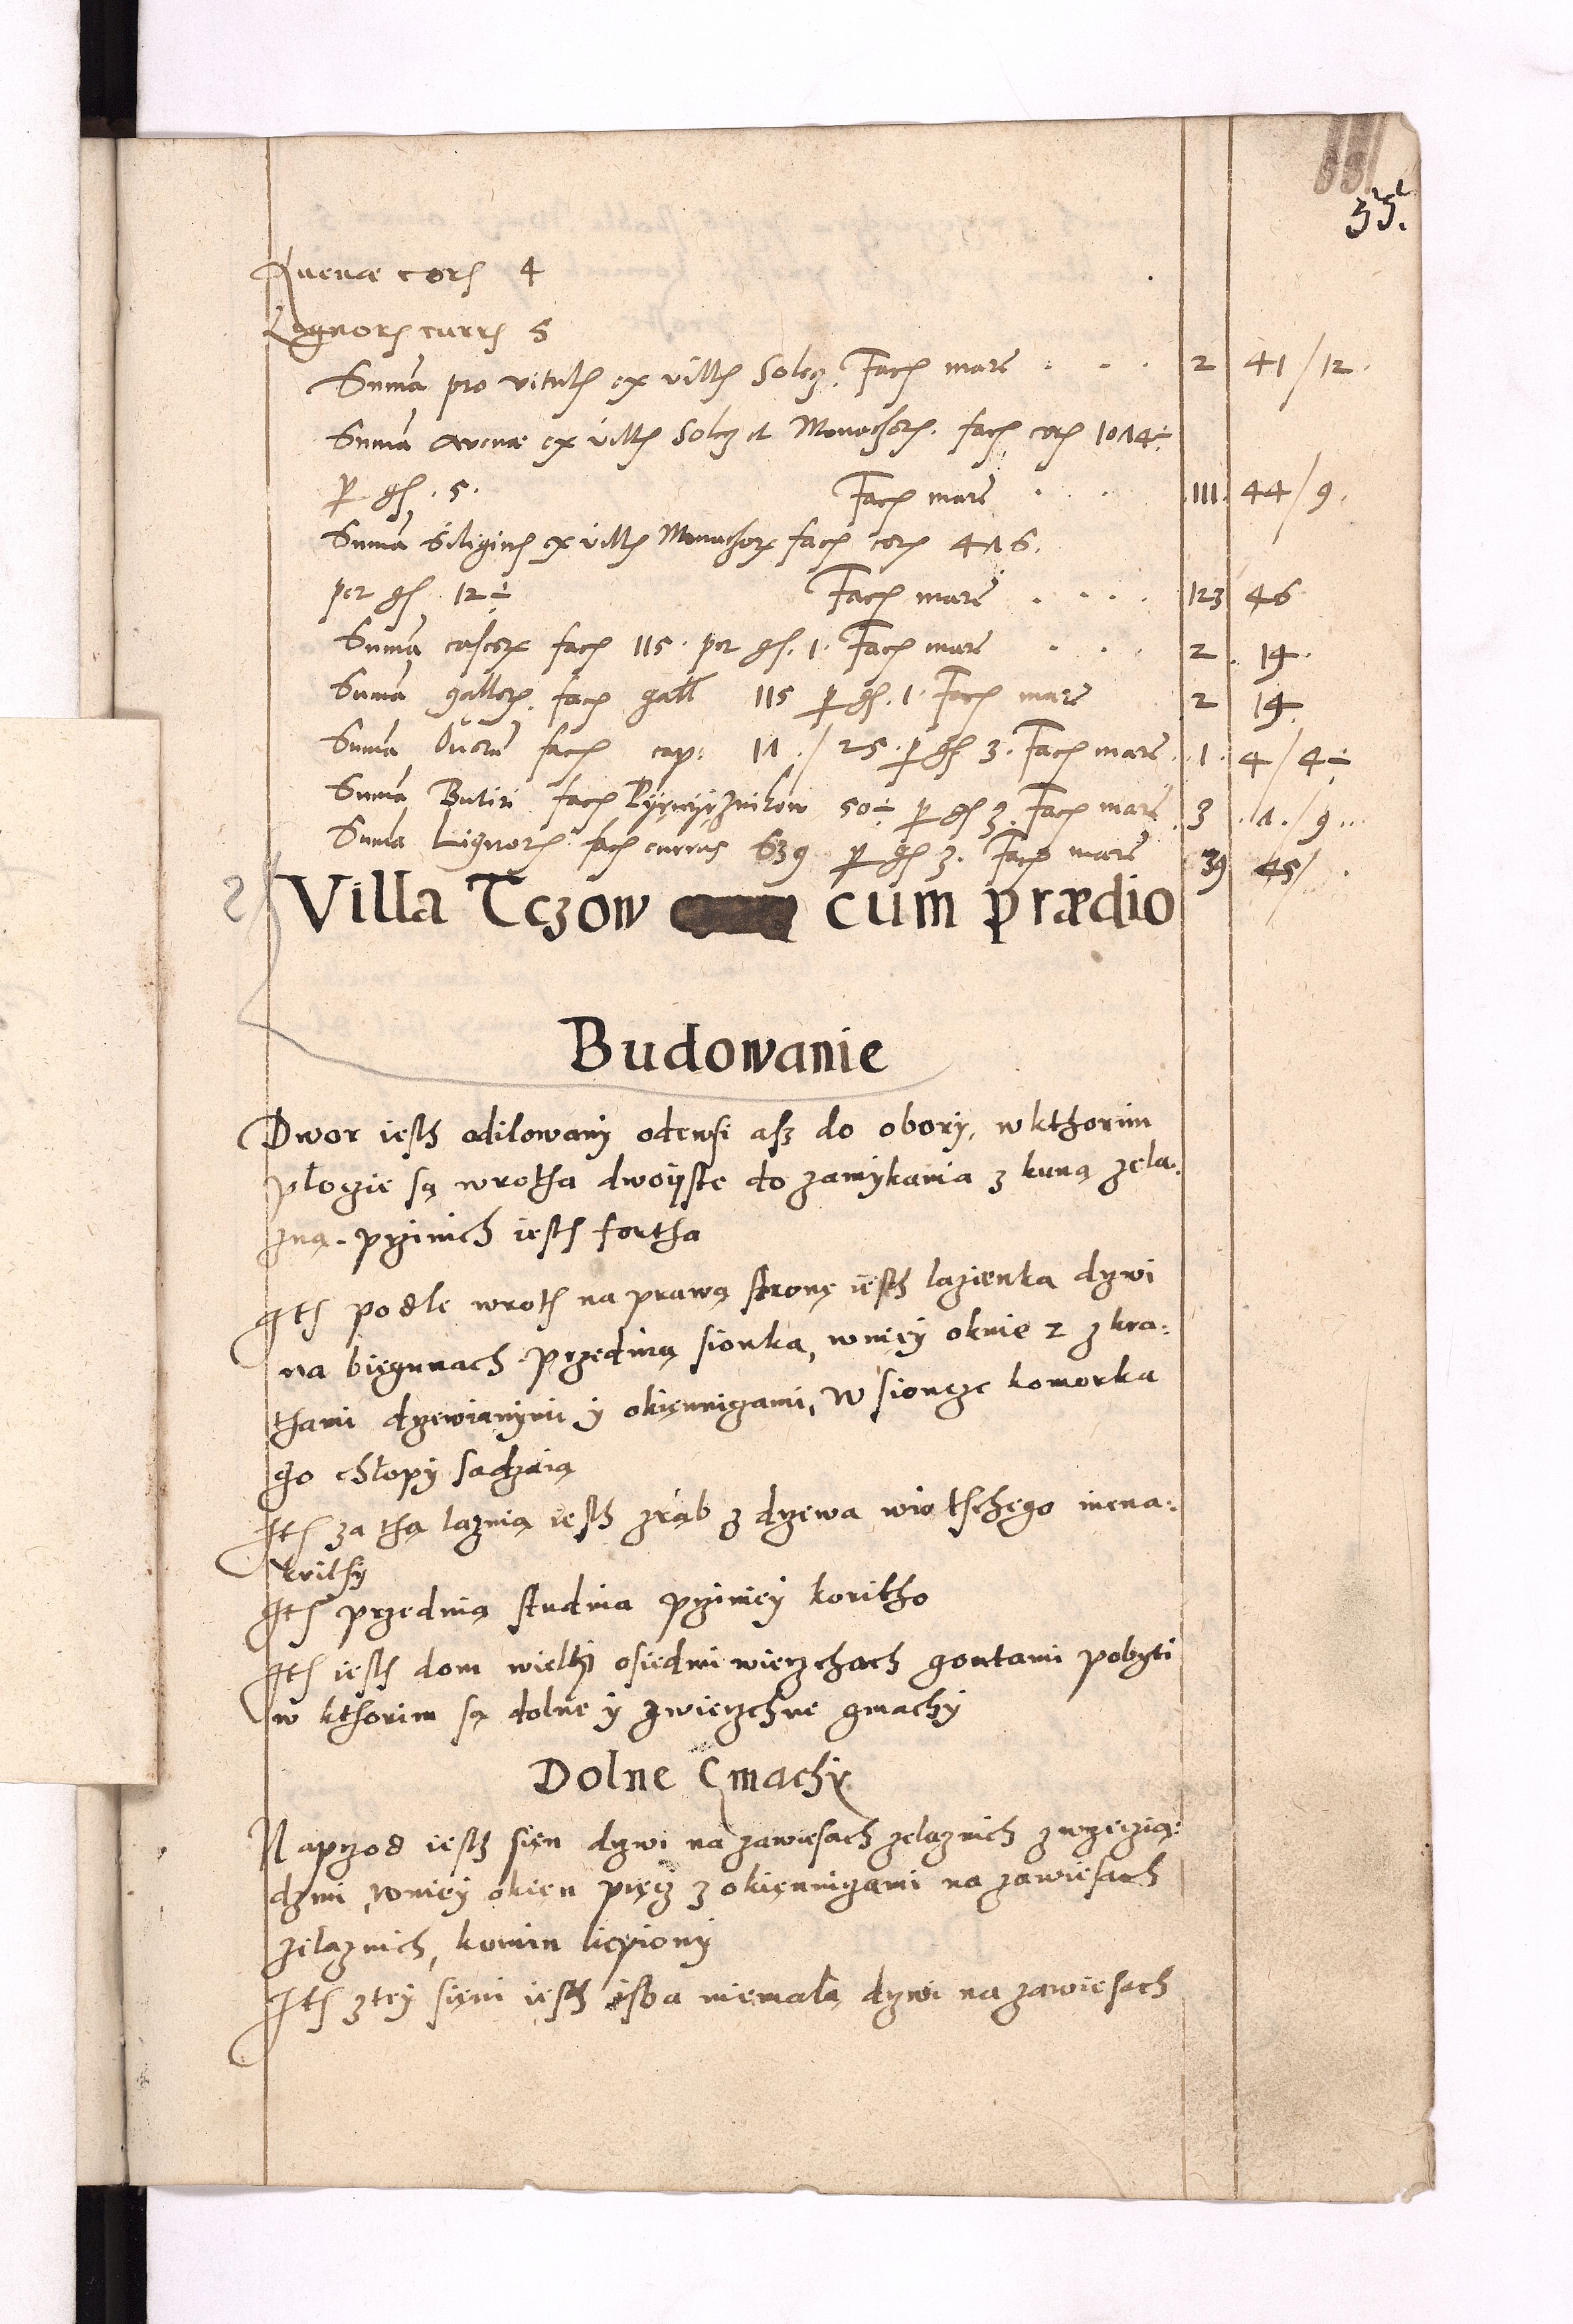 35.
Auenæ cor 4
Lignor curr 5
Suma pro vitul ex vill Solecz. Facit marc . . . 2 41/12.
Suma avenæ ex vill Solecz et Monachor. facit cor 1014÷
P gs. 5. Facit marc . . . 111. 44/9.
Suma Siliginis ex vill Monachor facit cor 476.
per gs 12÷ Facit marc . . . . 123 46
Suma caseor facit 115. per gs. 1. Facit marc . . . 2. 19.
Suma gallor. facit gall 115 P gs. 1. Facit marc 2 19
Suma Ovorum facit cap: 17./25. P gs 3. Facit marc .1. 4/4÷
Suma Butiri facit 50÷ P gs 3. Facit marc 3 .1./9...
Suma Lignor facit currus 639 P gs 3. Facit marc 39 45/.
Villa Tczow cum prædio
Budowanie
Dwor iesth odilowany odewsi asz do obory, w kthorim
płoczie są wrotha dwoyste do zamykania z kuną zela:
zną. przinich iesth fortha
Ith podle wroth na prawą stronę iesth lazienka drzwi
na biegunach przednią sionka, wniey oknie 2 z kra:
thami drzewianymi y okięnniczami, W siencze komorka
go chłopy sadzaią
Ith za thą laznią iesth zrąb z drzewa wiothschego niena:
krithy
Ith przednią studnia prziniey koritho
Ith iesth dom wielky osiedmi wierzchach gontami pobyti
w kthorim są dolne y zwierzchne gmachy
Dolne Gmachy
Naprzod iesth sięn drzwi na zawiesach zelaznich zwrzeczią:
dzmi, wniey okien pięcz z okięnniczami na zawiesach
zelaznich, komin liepiony
Ith ztey sięni iesth isba niemała drzwi na zawiesach